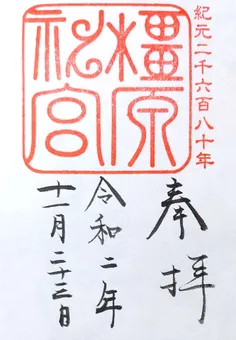 紀元二千六百八十年
橿原
神宮
奉拝
令和二年
十一月二十三日